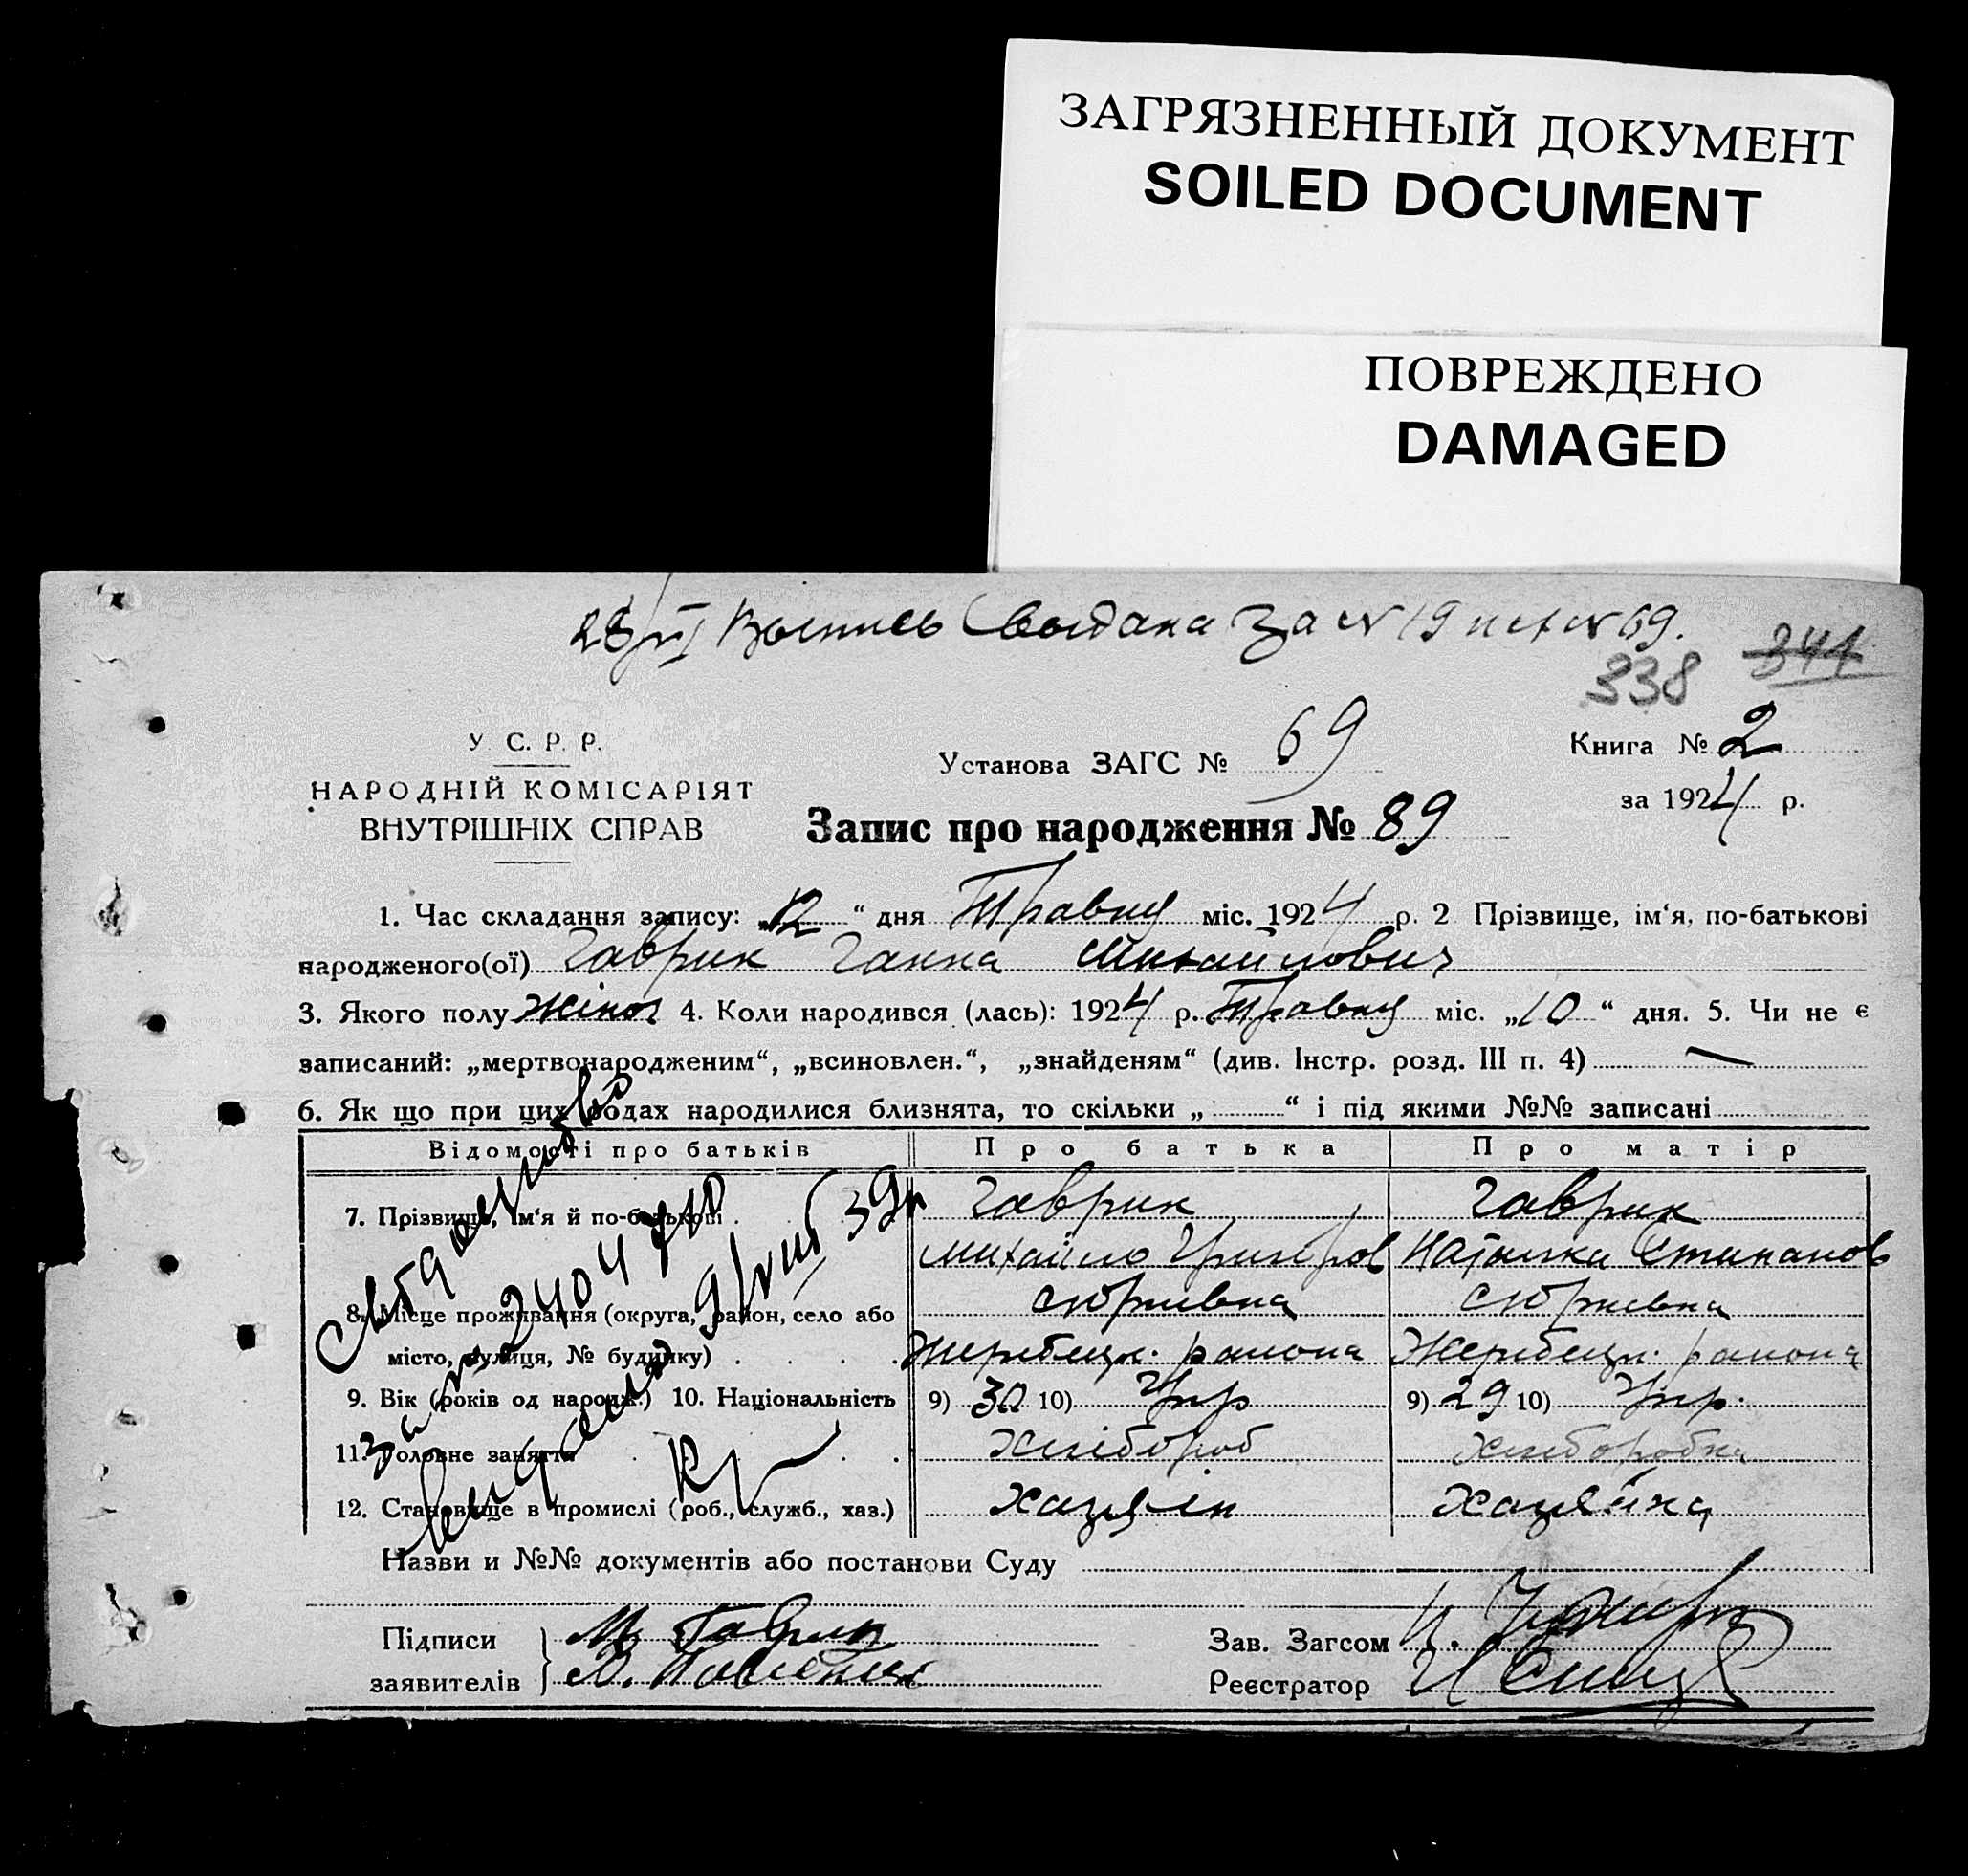 ЗАГРЯЗНЕННЫЙ ДОКУМЕНТ
SOILED DOCUMENT
ПОВРЕЖДЕНО
DAMAGED
28/VI Выпись выдана за № 19 исх № 69.
338 344
У. С. Р. Р.
НАРОДНІЙ КОМІСАРІЯТ
ВНУТРІШНІХ СПРАВ
Установа ЗАГС № 69
Книга № 2
за 1924 р.
Запис про народження № 89
1. Час складання запису: „12“ дня Травня міс. 1924 р. 2 Прізвище, ім‘я, по-батькові
народженого(ої) Гаврик Ганна Михайлович
3. Якого полу жіноч 4. Коли народився (лась): 1924 р. Травня міс. „10“ дня. 5. Чи не є
записаний: „мертвонародженим“, „всиновлен.“, „знайденям“ (див. Інстр. розд. III п. 4) —
6. Як що при цих родах народилися близнята, то скільки „ “ і під якими №№ записані
Відомості про батьків Про батька Про матір
7. Прізвище, ім‘я й по-батькові Гаврик Гаврик
Михайло Григоров Наталка Степанов
8. Місце проживання (округа, район, село або Юрківка Юрківка
місто, вулиця, № будинку) Жеребецк. района Жеребецк. района
9. Вік (років од народж.) 10. Національність 9) 30 10) Укр 9) 29 10) Укр.
11. Головне заняття Хлібороб Хліборобка
12. Становище в промислі (роб., служб., хаз.) Хазяїн Хазяйка
за № 2404710
9/VIII 39р
Назви и №№ документів або постанови Суду
Підписи М. Гаврик
заявителів
Зав. Загсом
Реєстратор